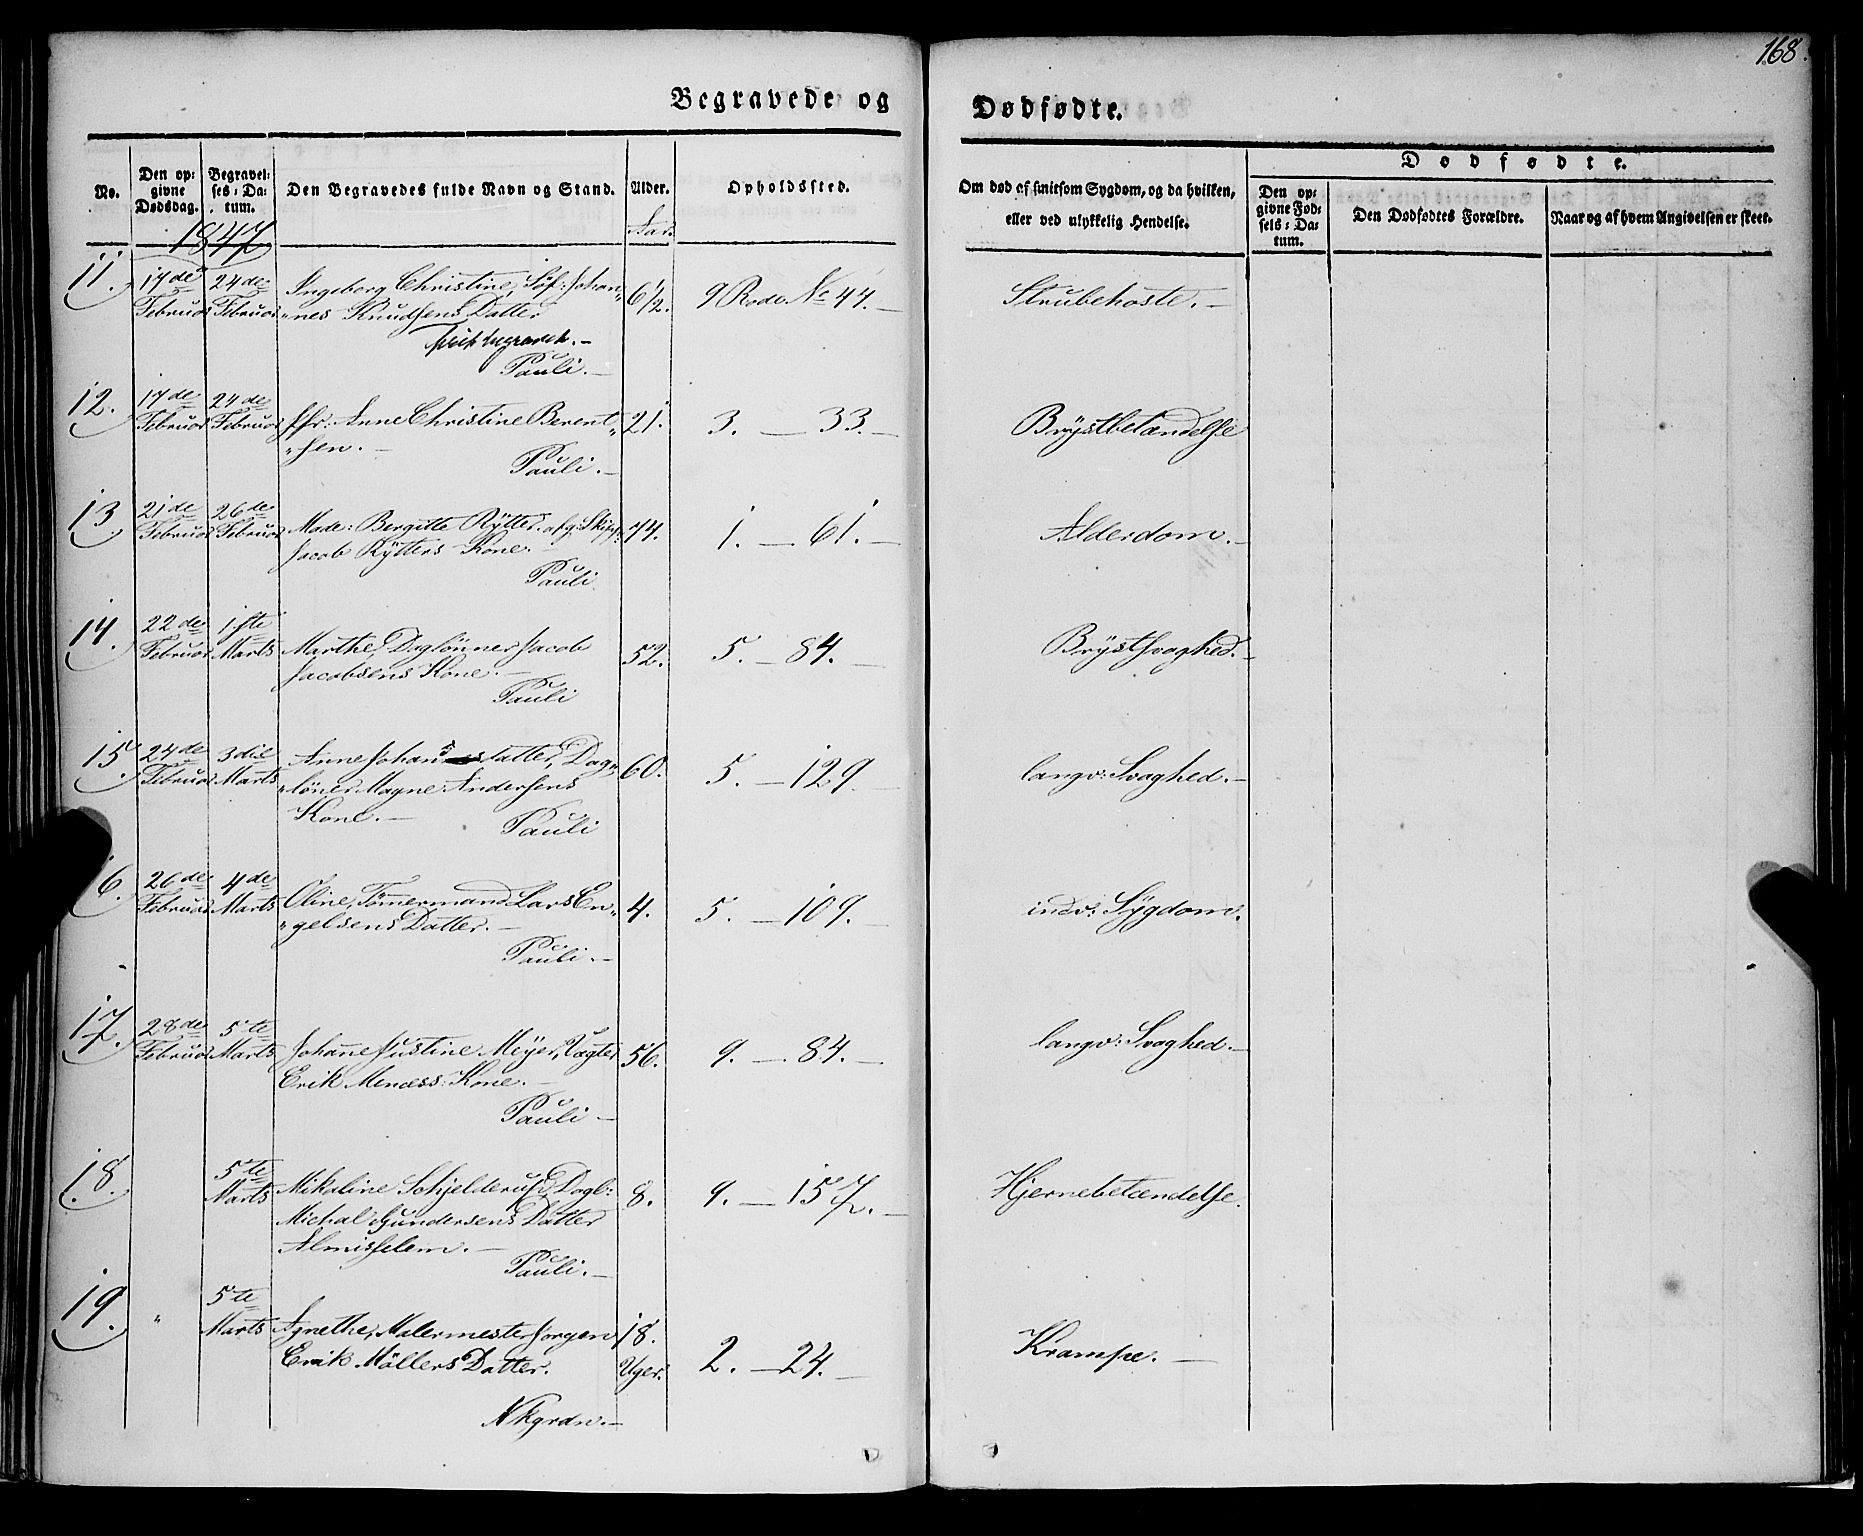 168.
Begravede og Dødfødte.
No.
Den opgivne Dødsdag.
Begravelses-Datum.
Den Begravedes fulde Navn og Stand.
Alder.
Opholdssted.
Om død af smitsom Sygdom, og da hvilken,
eller ved ulykkelig Hendelse.
Dødfødte.
Den opgivne Fødsels-Datum.
Den Dødfødtes Forældre.
Naar og af hvem Angivelsen er skeet.
1847
Aar
11. 17de Februar 24de Februar Ingeborg Christine, Søf: Johan„ 6½. 9 Rode No 44.— Strubehoste.—
„nes Knudsens Datter
begravet.—
Pauli.—
12. 17de Februar 24de Februar Jfr: Anne Christine Berent„ 21. 3. — 33.— Brÿstbetændelse
„sen.—
Pauli.—
13 21de Februar 26de Februar Mad: Bergitte Rÿtter. afg: Skipp: 74. 1. — 61.— Alderdom.—
Jacob Rÿtters Kone.—
Pauli.
14. 22de Februar 1ste Marts Marthe, Daglønner Jacob 52. 5. — 84.— Brÿstsvaghed.—
Jacobsens Kone.—
Pauli
15. 24de Februar 3die Marts Anne Johans datter, Dag„ 60. 5. — 129. langv: Svaghed.—
„løner Magne Andersens
Kone.—
Pauli
16. 26de Februar 4de Marts Oline, Tømmermand Lars En„ 4. 5. — 109.— indv: Sÿgdom.
„gelsens Datter.—
Pauli.—
17. 28de Februar 5te Marts Johanne Justine Meÿer, Vægter 56. 9. — 84.— langv: Svaghed.—
Erik Meness: Kone.—
Pauli—
18. 5te Marts Mikaline Schjelderup, Dagl: 8. 9. — 157.— Hjernebetændelse.
Michal Gundersens Datter
Almisselem.—
Pauli.—
19. „ 5te Marts Agnethe, Malermester Jørgen 18. Uger. 2. — 24.— Krampe.—
Erik Möllers Datter.
N Kgrdn.—